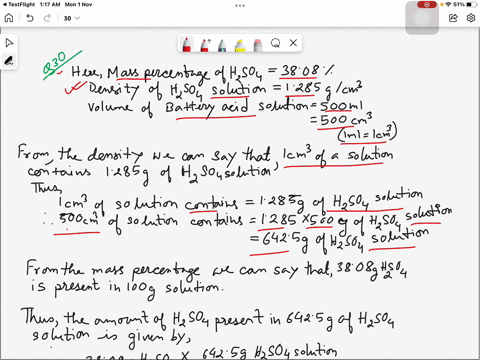 TestFlight 1:17 AM Mon 1 Nov
51%
30
Q30
Here, Mass percentage of H₂SO₄ = 38.08%
Density of H₂SO₄ solution = 1.285 g/cm³
Volume of Battery acid solution = 500ml
= 500 cm³
(1ml = 1cm³)
From, the density we can say that, 1cm³ of a solution
contains 1.285g of H₂SO₄ solution,
Thus,
1cm³ of solution contains = 1.285g of H₂SO₄ solution
∴ 500cm³ of solution contains = 1.285 × 500 g of H₂SO₄ solution
= 642.5g of H₂SO₄ solution
From the mass percentage we can say that, 38.08g H₂SO₄
is present in 100g solution.
Thus, the amount of H₂SO₄ present in 642.5g of H₂SO₄
solution is given by,
× 642.5g H₂SO₄ solution